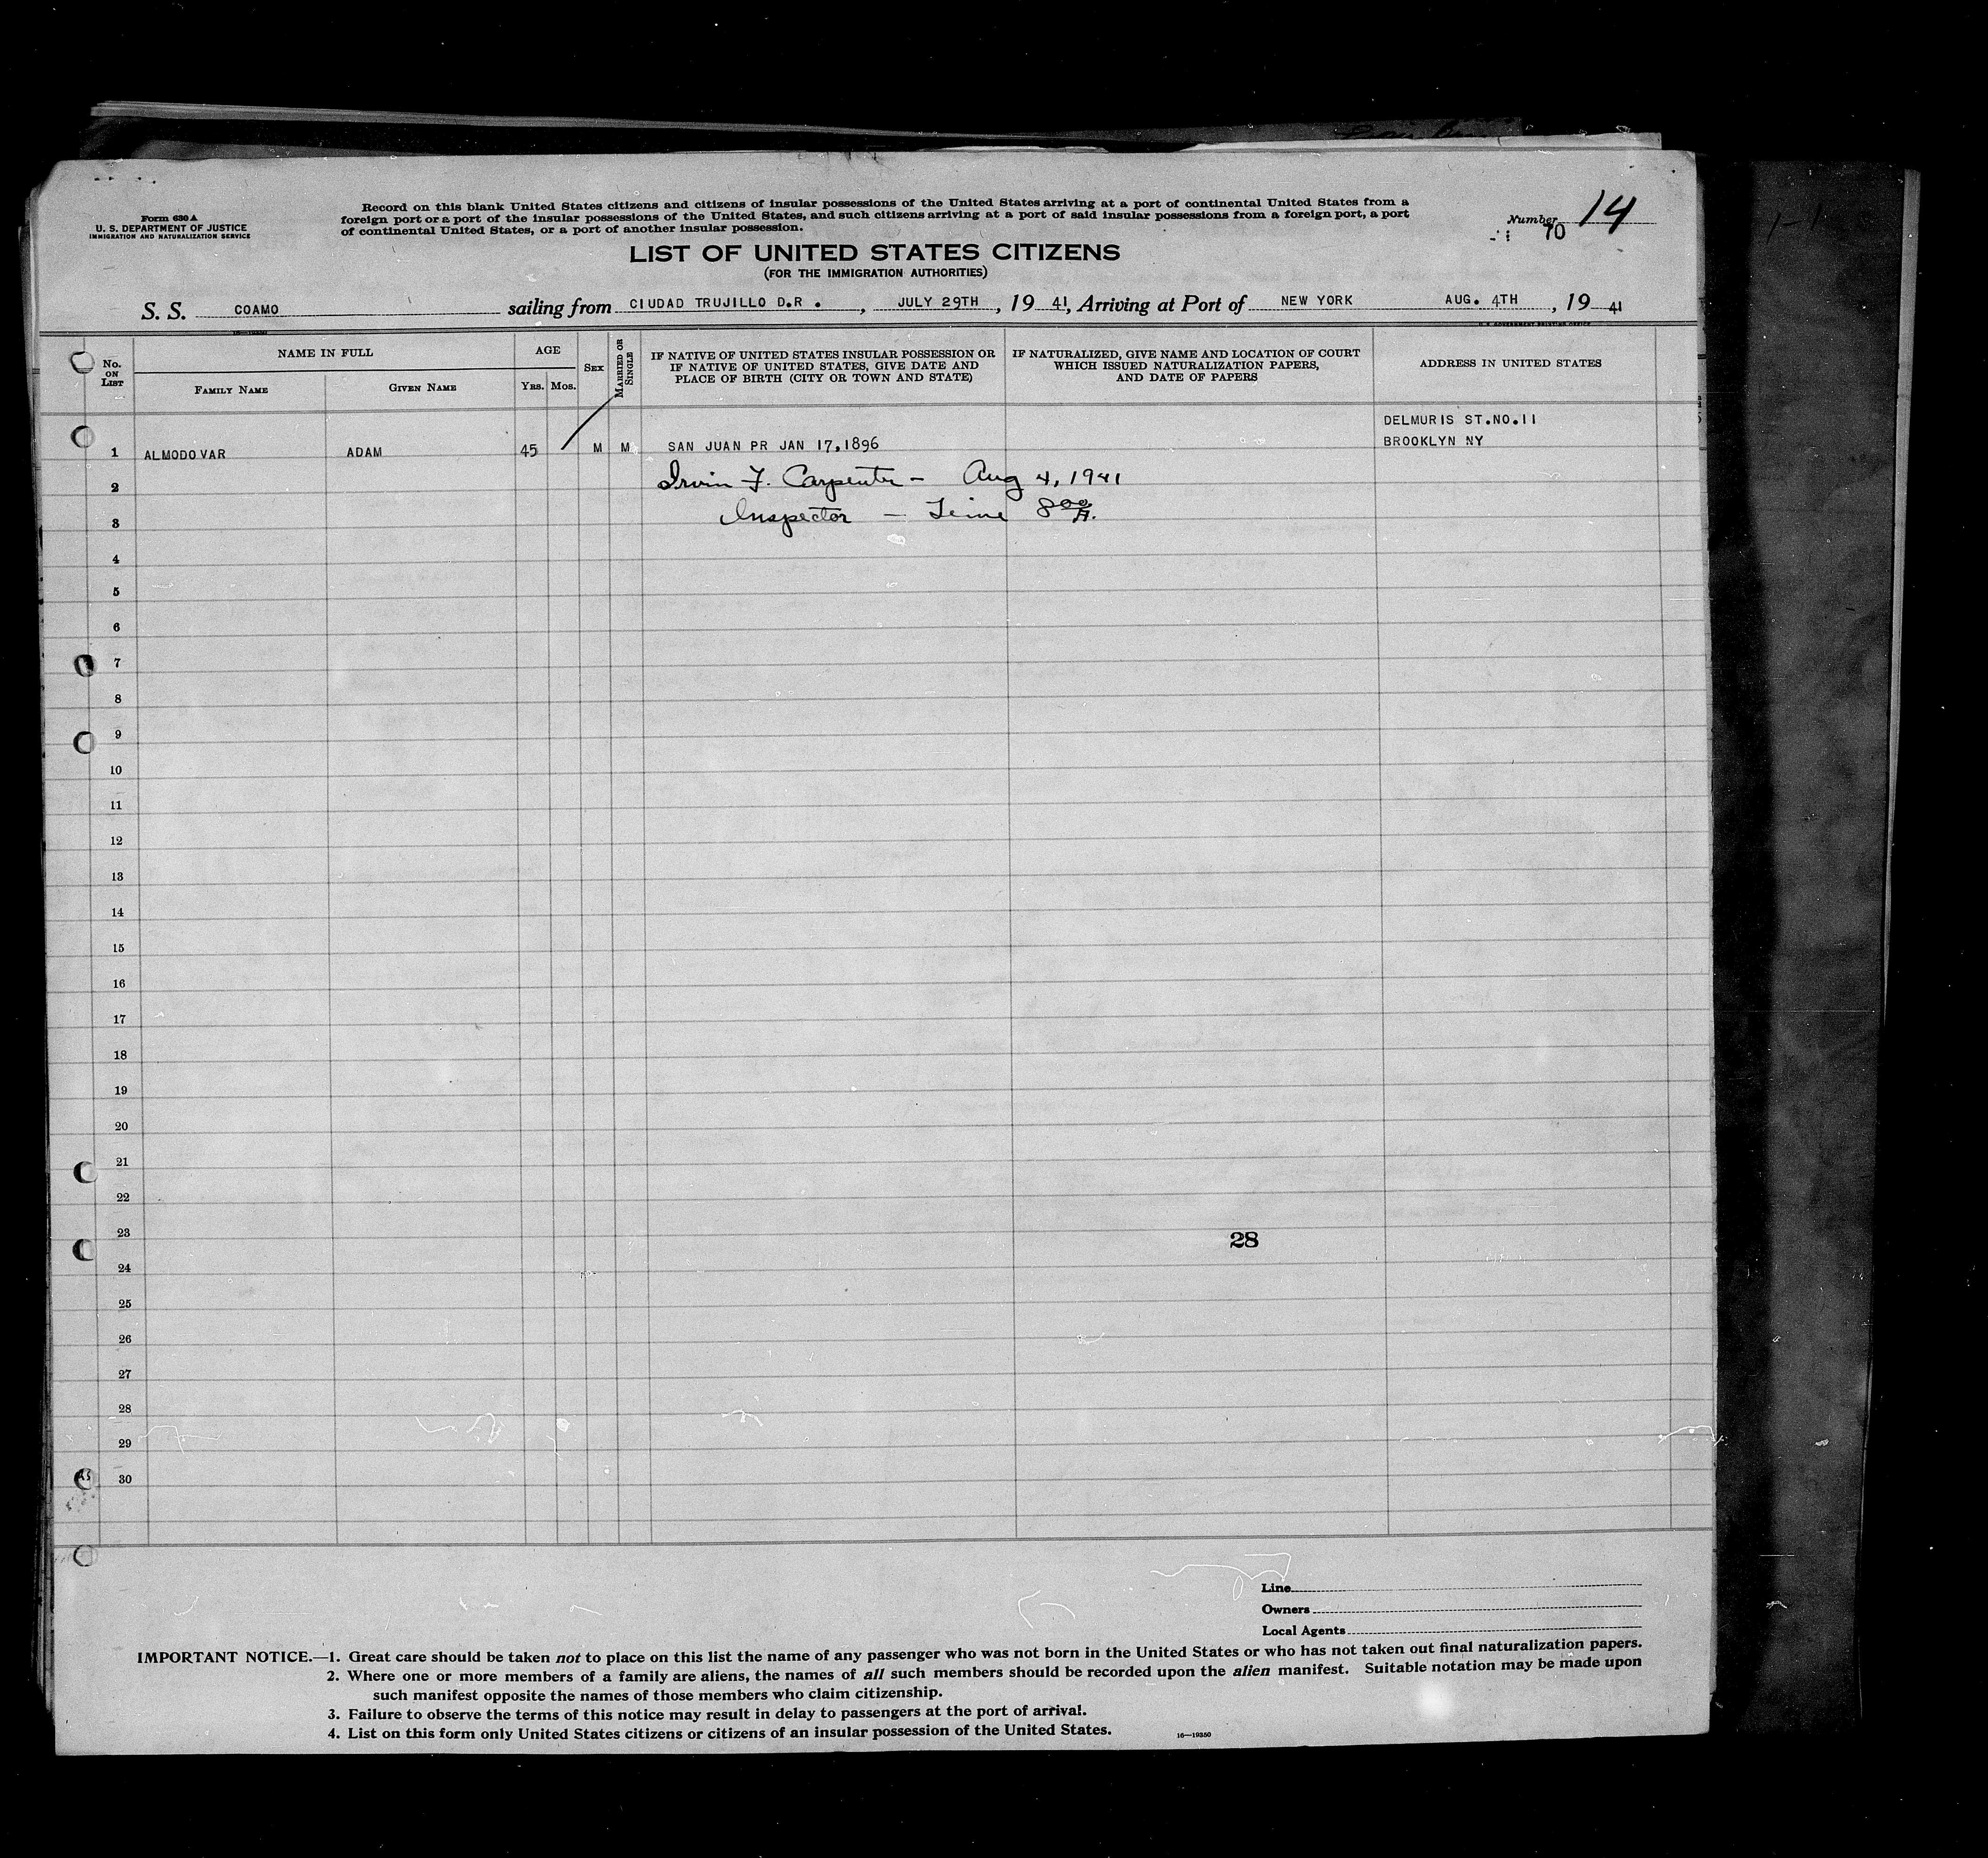 Form 630 A
U. S. DEPARTMENT OF JUSTICE
IMMIGRATION AND NATURALIZATION SERVICE
Record on this blank United States citizens and citizens of insular possessions of the United States arriving at a port of continental United States from a
foreign port or a port of the insular possessions of the United States, and such citizens arriving at a port of said insular possessions from a foreign port, a port
of continental United States, or a port of another insular possession.
Number 14
70
LIST OF UNITED STATES CITIZENS
(FOR THE IMMIGRATION AUTHORITIES)
S. S. COAMO sailing from CIUDAD TRUJILLO D.R . , JULY 29TH , 19 41, Arriving at Port of NEW YORK AUG. 4TH , 19 41
U. S. GOVERNMENT PRINTING OFFICE
No. ON LIST
NAME IN FULL
FAMILY NAME
GIVEN NAME
AGE
YRS. MOS.
SEX
MARRIED OR SINGLE
IF NATIVE OF UNITED STATES INSULAR POSSESSION OR
IF NATIVE OF UNITED STATES, GIVE DATE AND
PLACE OF BIRTH (CITY OR TOWN AND STATE)
IF NATURALIZED, GIVE NAME AND LOCATION OF COURT
WHICH ISSUED NATURALIZATION PAPERS,
AND DATE OF PAPERS
ADDRESS IN UNITED STATES
DELMURIS ST.NO.11
1 ALMODOVAR ADAM 45 M M SAN JUAN PR JAN 17,1896 BROOKLYN NY
2 Irvin F. Carpenter – Aug 4, 1941
3 Inspector – Time 8 00 A.
4
5
6
7
8
9
10
11
12
13
14
15
16
17
18
19
20
21
22
23 28
24
25
26
27
28
29
30
Line
Owners
Local Agents
IMPORTANT NOTICE.—1. Great care should be taken not to place on this list the name of any passenger who was not born in the United States or who has not taken out final naturalization papers.
2. Where one or more members of a family are aliens, the names of all such members should be recorded upon the alien manifest. Suitable notation may be made upon
such manifest opposite the names of those members who claim citizenship.
3. Failure to observe the terms of this notice may result in delay to passengers at the port of arrival.
4. List on this form only United States citizens or citizens of an insular possession of the United States.
16—19350